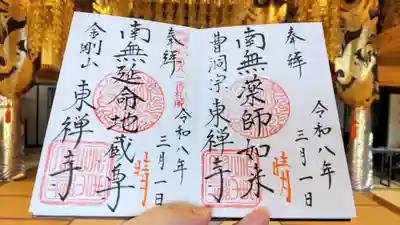 奉拝
南無薬師如来
曹洞宗 東禅寺
令和八年
三月一日
晴
奉拝
南無延命地蔵尊
金剛山 東禅寺
令和八年
三月一日
晴